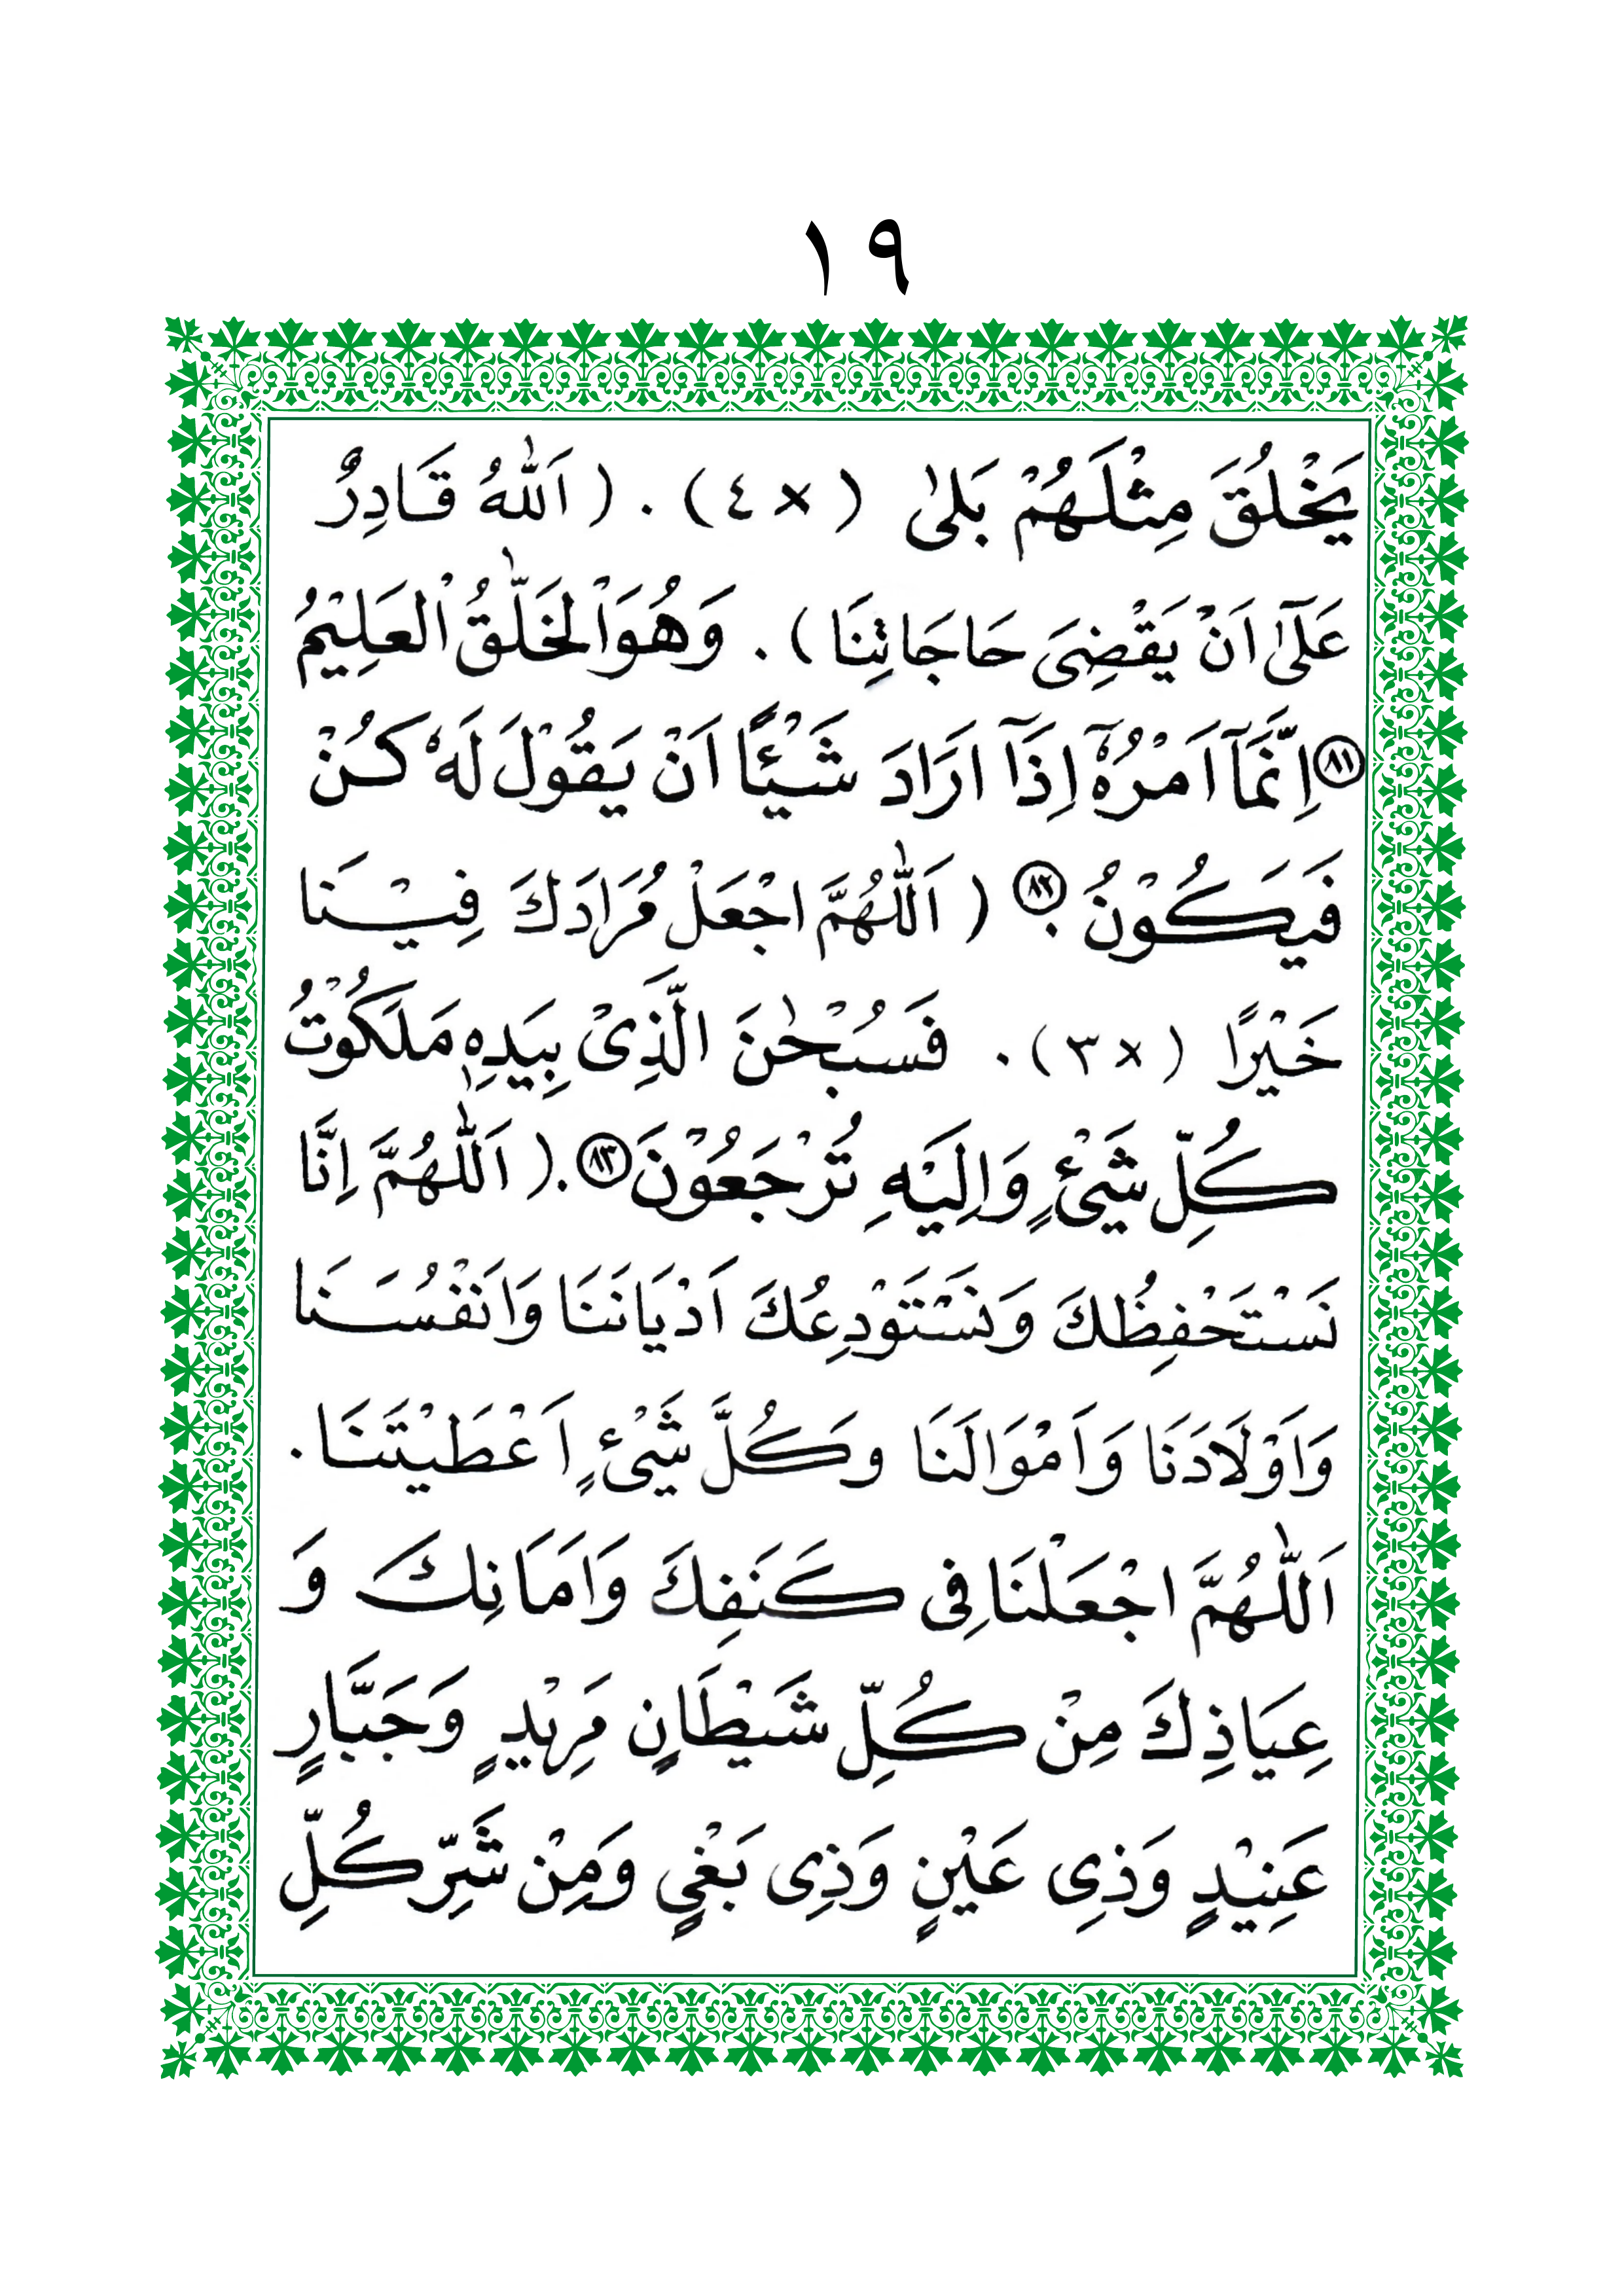 ١٩
يَخْلُقَ مِثْلَهُمْ بَلىٰ (×٤). (اَللّٰهُ قَادِرٌ
عَلٰٓى اَنْ يَقْضِىَ حَاجَاتِنَا). وَهُوَ الْخَلّٰقُ الْعَلِيْمُ
٨١ اِنَّمَآ اَمْرُهٗٓ اِذَآ اَرَادَ شَيْئًا اَنْ يَقُوْلَ لَهٗ كُنْ
فَيَكُوْنُ ٨٢. (اَللّٰهُمَّ اجْعَلْ مُرَادَكَ فِيْنَا
خَيْرًا (×٣). فَسُبْحٰنَ الَّذِىْ بِيَدِهٖ مَلَكُوْتُ
كُلِّ شَىْءٍ وَاِلَيْهِ تُرْجَعُوْنَ ٨٣. (اَللّٰهُمَّ اِنَّا
نَسْتَحْفِظُكَ وَنَسْتَوْدِعُكَ اَدْيَانَنَا وَاَنْفُسَنَا
وَاَوْلَادَنَا وَاَمْوَالَنَا وَكُلَّ شَىْءٍ اَعْطَيْتَنَا.
اَللّٰهُمَّ اجْعَلْنَا فِى كَنَفِكَ وَاَمَانِكَ وَ
عِيَاذِكَ مِنْ كُلِّ شَيْطَانٍ مَرِيْدٍ وَجَبَّارٍ
عَنِيْدٍ وَذِى عَيْنٍ وَذِى بَغْىٍ وَمِنْ شَرِّ كُلِّ